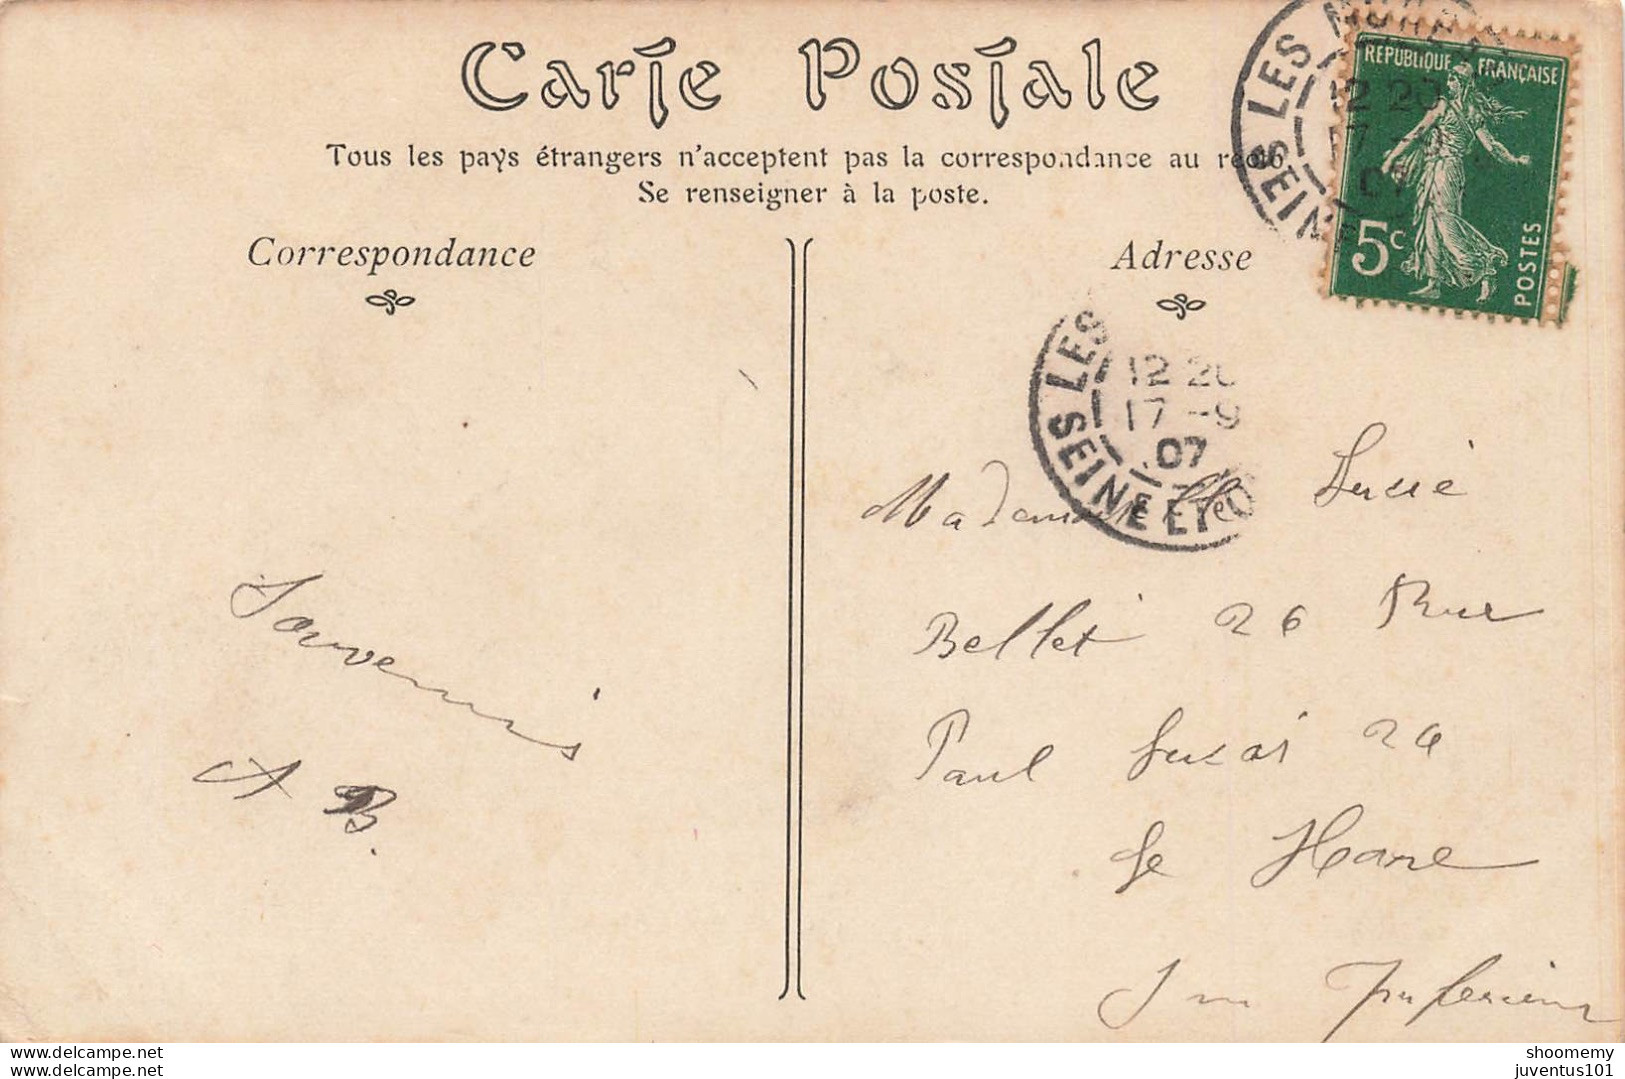 Carte Postale
Tous les pays étrangers n'acceptent pas la correspondance au recto
Se renseigner à la poste.
Correspondance
Adresse
REPUBLIQUE FRANÇAISE
5c
POSTES
LES MUREAUX
12 20
17 -9
07
SEINE
LES
12 20
17 -9
07
SEINE ET O
Souvenirs
A B.
Mademoiselle Lucie
Bellet 26 Rue
Paul 26
Le Havre
Inferieure
www.delcampe.net
www.delcampe.net
shoomemy
juventus101